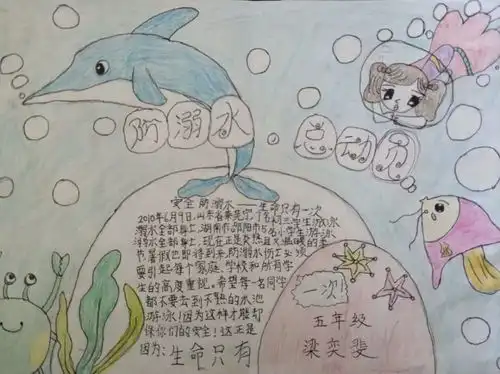 防溺水
总动员
安全防溺水——生命只有一次
2010年6月9日,山东省莱芜 7名初三学生游泳
溺水全部身上,湖南市邵阳市5名小学生游泳
溺水全部身上,现在正是炎热且又 的季
节暑假也即将到来,防溺水伤亡必须
要引起每个家庭、学校和所有学
生的高度重视。希望每一名同学
都不要去到不熟的水池
游泳!因为这样才能却
保你们的安全!这正是
因为:生命只有
一次!
五年级
梁奕斐